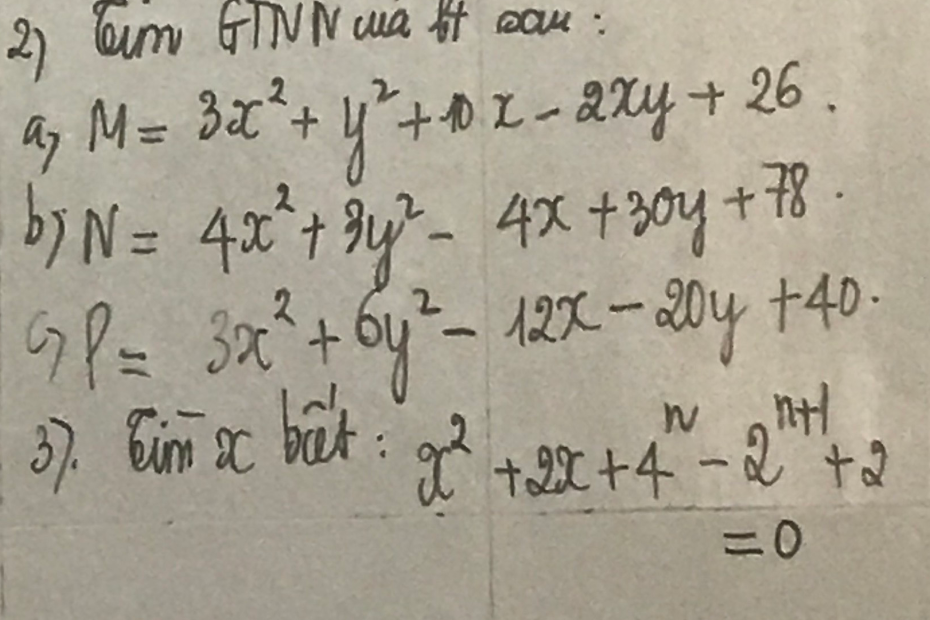 2) Tìm GTNN của bt sau :
a, M = 3x² + y² + 10x - 2xy + 26 .
b) N = 4x² + 3y² - 4x + 30y + 78 .
c) P = 3x² + 6y² - 12x - 20y + 40 .
3). Tìm x biết : x² + 2x + 4ⁿ - 2ⁿ⁺¹ + 2
= 0